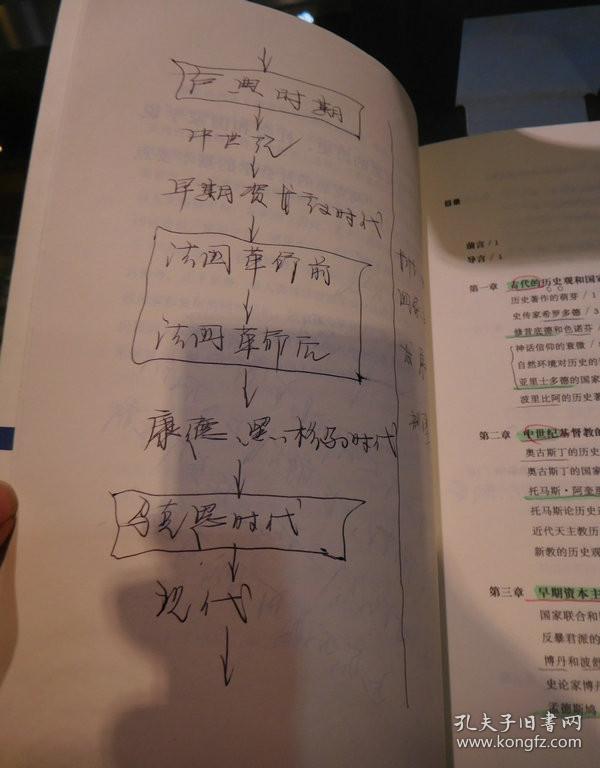 古典时期
中世纪
早期资本主义时代
法国革命前
法国革命后
康德、黑格尔时代
马克思时代
现代
目录
前言 / 1
导言 / 1
第一章 古代的历史观和国家
历史著作的萌芽 / 1
史传家希罗多德 / 3
修昔底德和色诺芬 /
神话信仰的衰微 /
自然环境对历史的
亚里士多德的国家
波里比阿的历史著
第二章 中世纪基督教的
奥古斯丁的历史
奥古斯丁的国家
托马斯·阿奎那
托马斯论历史
近代天主教历
新教的历史观
第三章 早期资本主
国家联合和
反暴君派的
博丹和波舒
史论家博丹
孟德斯鸠
孔夫子旧书网
www.kongfz.com